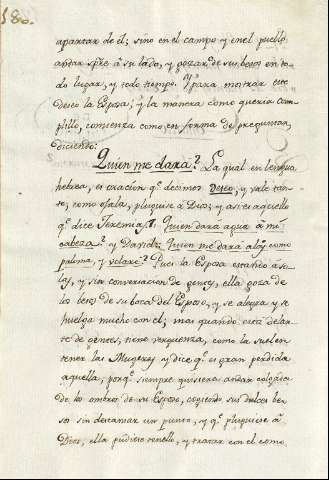 180.
apartar de él; sino en el campo y en el pueblo
andar spre. à su lado, y gozar de sus besos en to-
do lugar, y todo tiempo. Y para mostrar este
deseo la Esposa, y la manera como queria cum-
plillo, comienza como en forma de preguntar,
diciendo:
Quien me dará? La qual en lengua
hebrea, es oracion q.e decimos Deseo, y vale tan-
to, como ojala, pluguie à Dios; y asi es aquello
q.e dice Jeremias. Quien dará agua à mi
cabeza? y David: Quien me dará alas como
paloma, y volaré? Pues la Esposa estando à so-
las, y sin conversacion de gentes, ella goza de
los besos de su boca del Esposo, y se alegra y se
huelga mucho con el; mas quando está delan-
te de gentes, tiene verguenza, como la suelen
tener las Mugeres y dice q.e es gran perdida
aquella, porq.e siempre quisiera andar colgada
de los ombros de su Esposo, cogiendo sus dulces be-
sos sin descansar un punto, y q.e pluguiese à
Dios, ella pudiese tenello, y tratar con el como